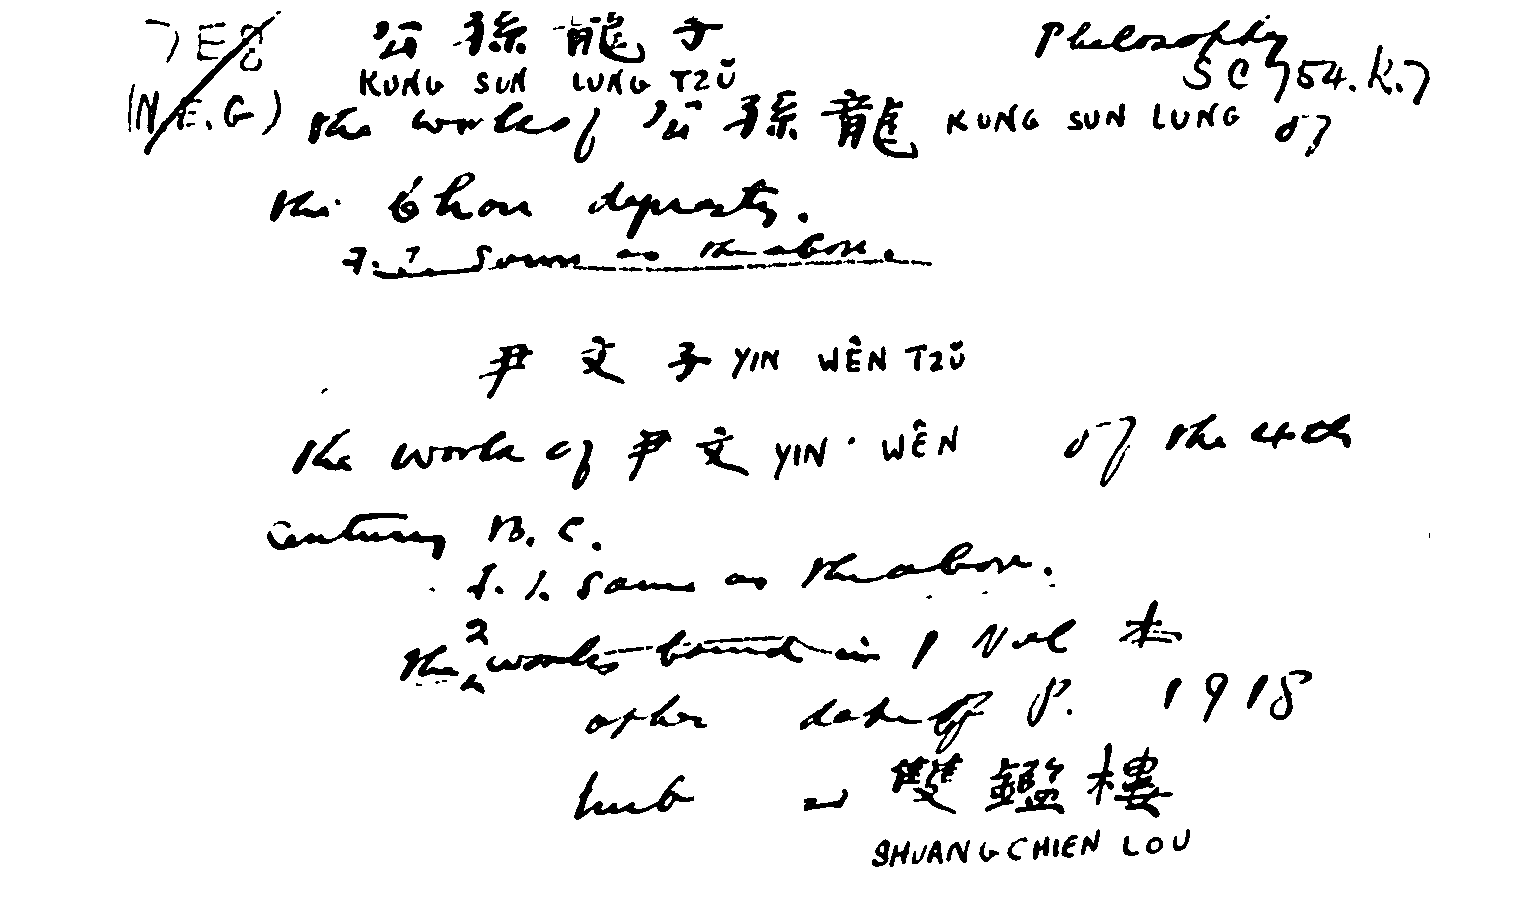 公孫龍子 Philosophy
KUNG SUN LUNG TZŬ SC 754.K.7
(N.E.G) the works of 公孫龍 KUNG SUN LUNG of
the Chou dynasty.
Same as the above.
尹文子 YIN WÊN TZŬ
the work of 尹文 YIN WÊN of the 4th
Century B.C.
Same as the above.
the 2 works bound in 1 Vol 本
other date of P. 1918
雙鑑樓
SHUANG CHIEN LOU